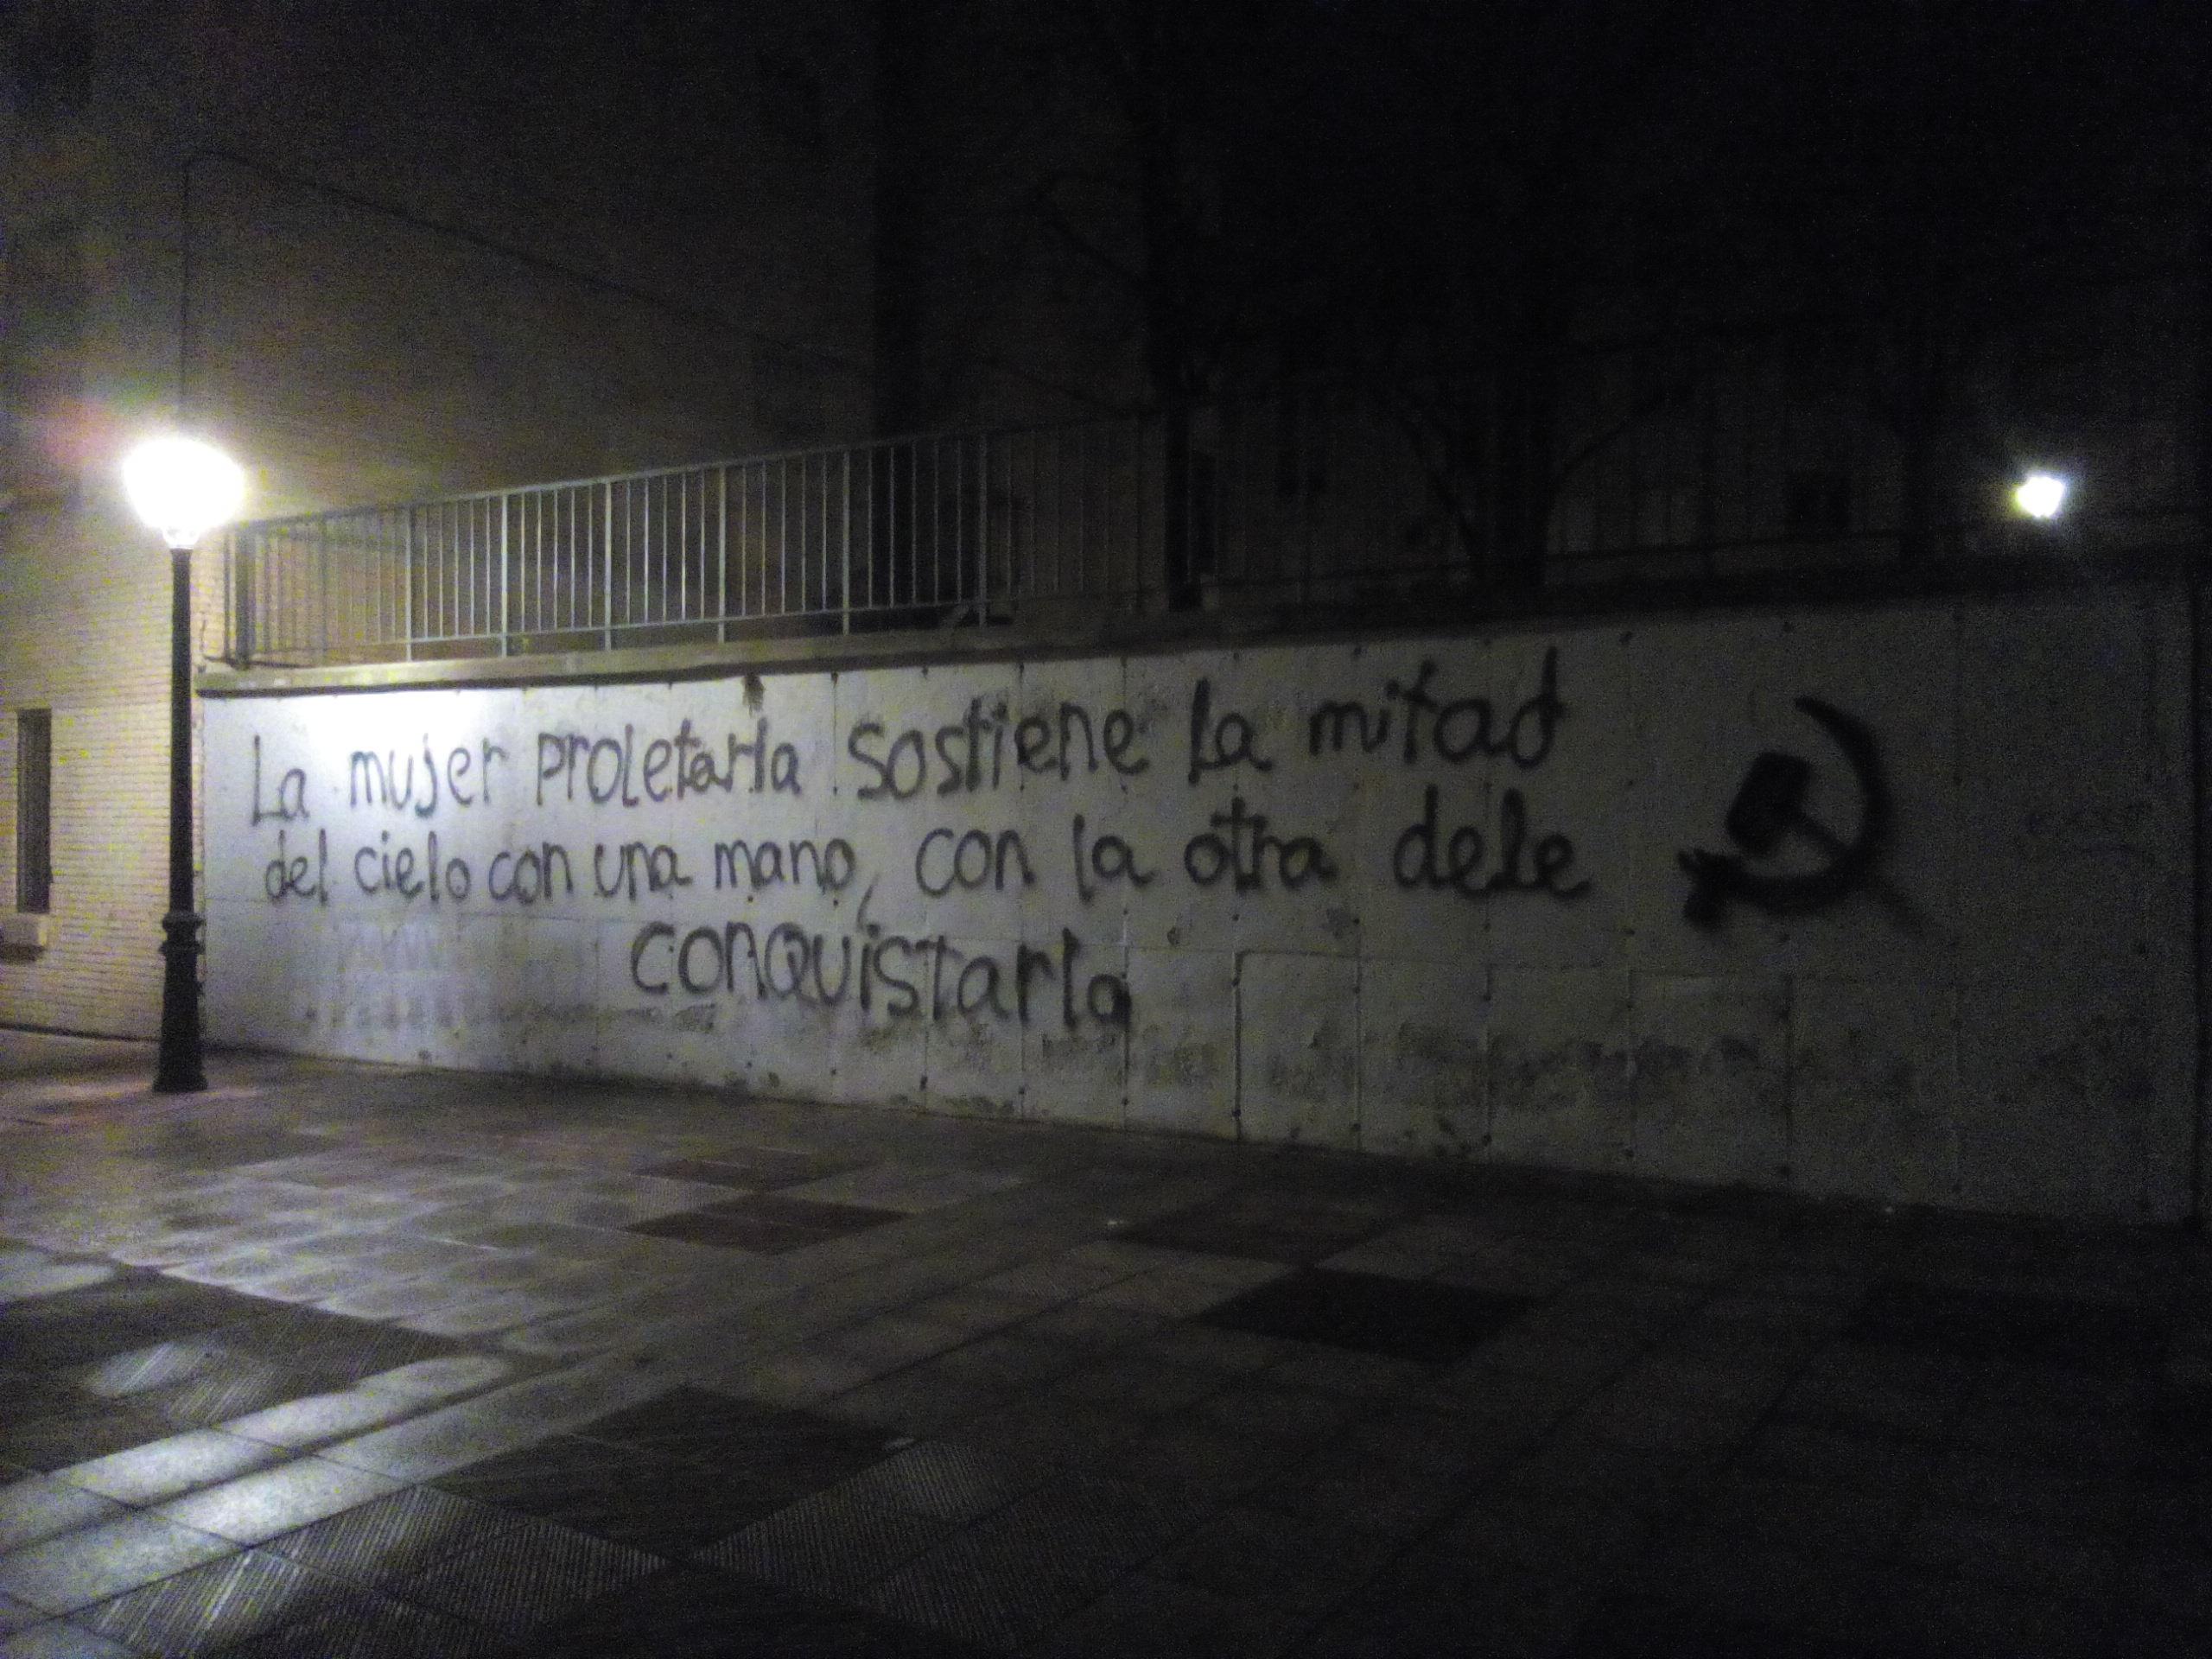 La mujer proletaria sostiene la mitad
del cielo con una mano, con la otra debe
conquistarla